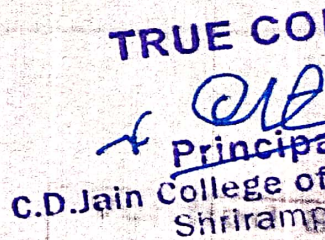 TRUE CO
Principa
C.D.Jain College of
Shriramp